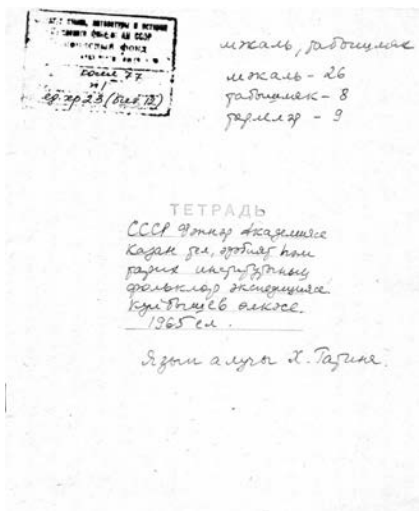 языка, литературы и истории
филиал АН СССР
фонд
колл 77
№1
ед. хр 23 (биб. 12)
мәкаль, табышмак
мәкаль - 26
табышмак - 8
- 9
ТЕТРАДЬ
СССР Фәннәр Академиясе
Казан тел, әдәбият һәм
тарих институтының
фольклор экспедициясе
Куйбышев өлкәсе.
1965 ел.
Язып алучы Х.